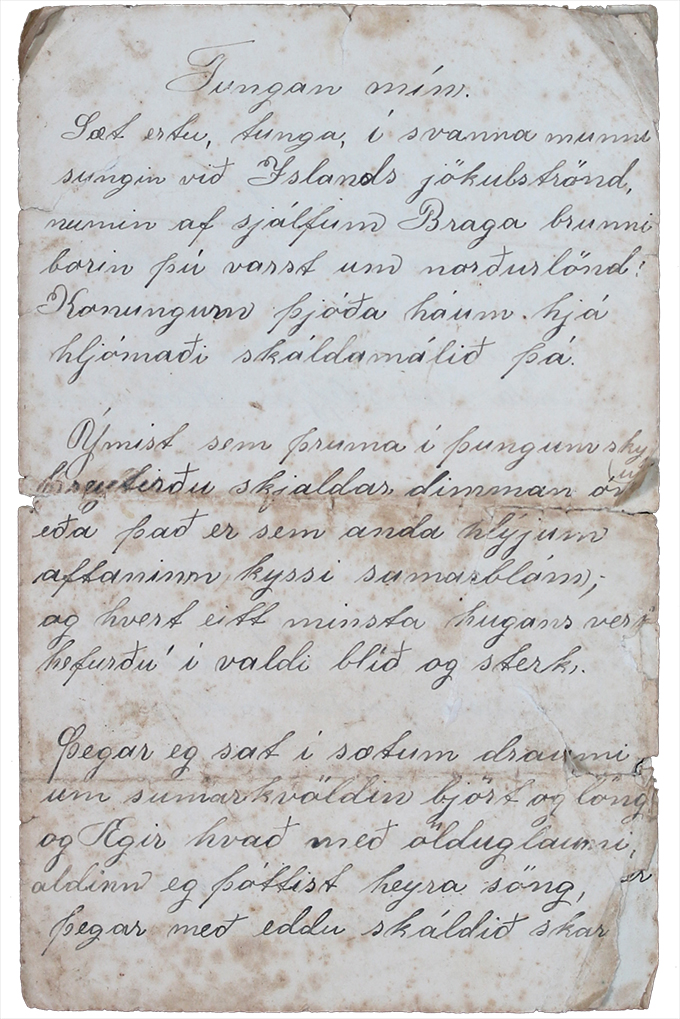 Tungan mín.
Sæt ertu, tunga, í svanna munni
sungin við Íslands jökulströnd,
numin af sjálfum Braga brunni
borin þú varst um norðurlönd:
Konungum þjóða háum hjá
hljómaði skáldamálið þá.
Ýmist sem þruma í þungum ský
skjaldar dimman
eða það er sem anda hlýjum
aftaninn kyssi sumarblóm;
og hvert eitt minsta hugans verk
hefurðu' í valdi blíð og sterk.
Þegar eg sat í sætum draumi,
um sumarkvöldin björt og löng
og Ægir kvað með ölduglaumi,
aldinn eg þóttist heyra söng, er
þegar með eddu skáldið skar